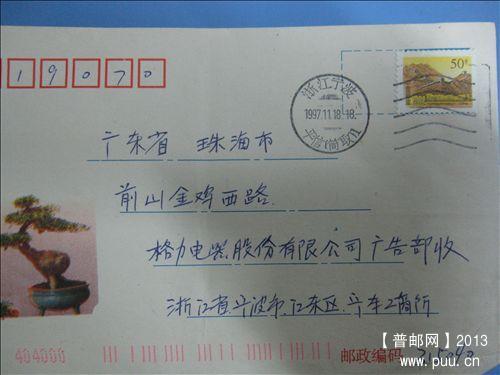 19070
50分
浙江宁波
1997.11.18.18
广东省 珠海市
前山金鸡西路
格力电器股份有限公司广告部收
浙江省宁波市江东区
404000
邮政编码 315040
【普邮网】2013
www.puu.cn